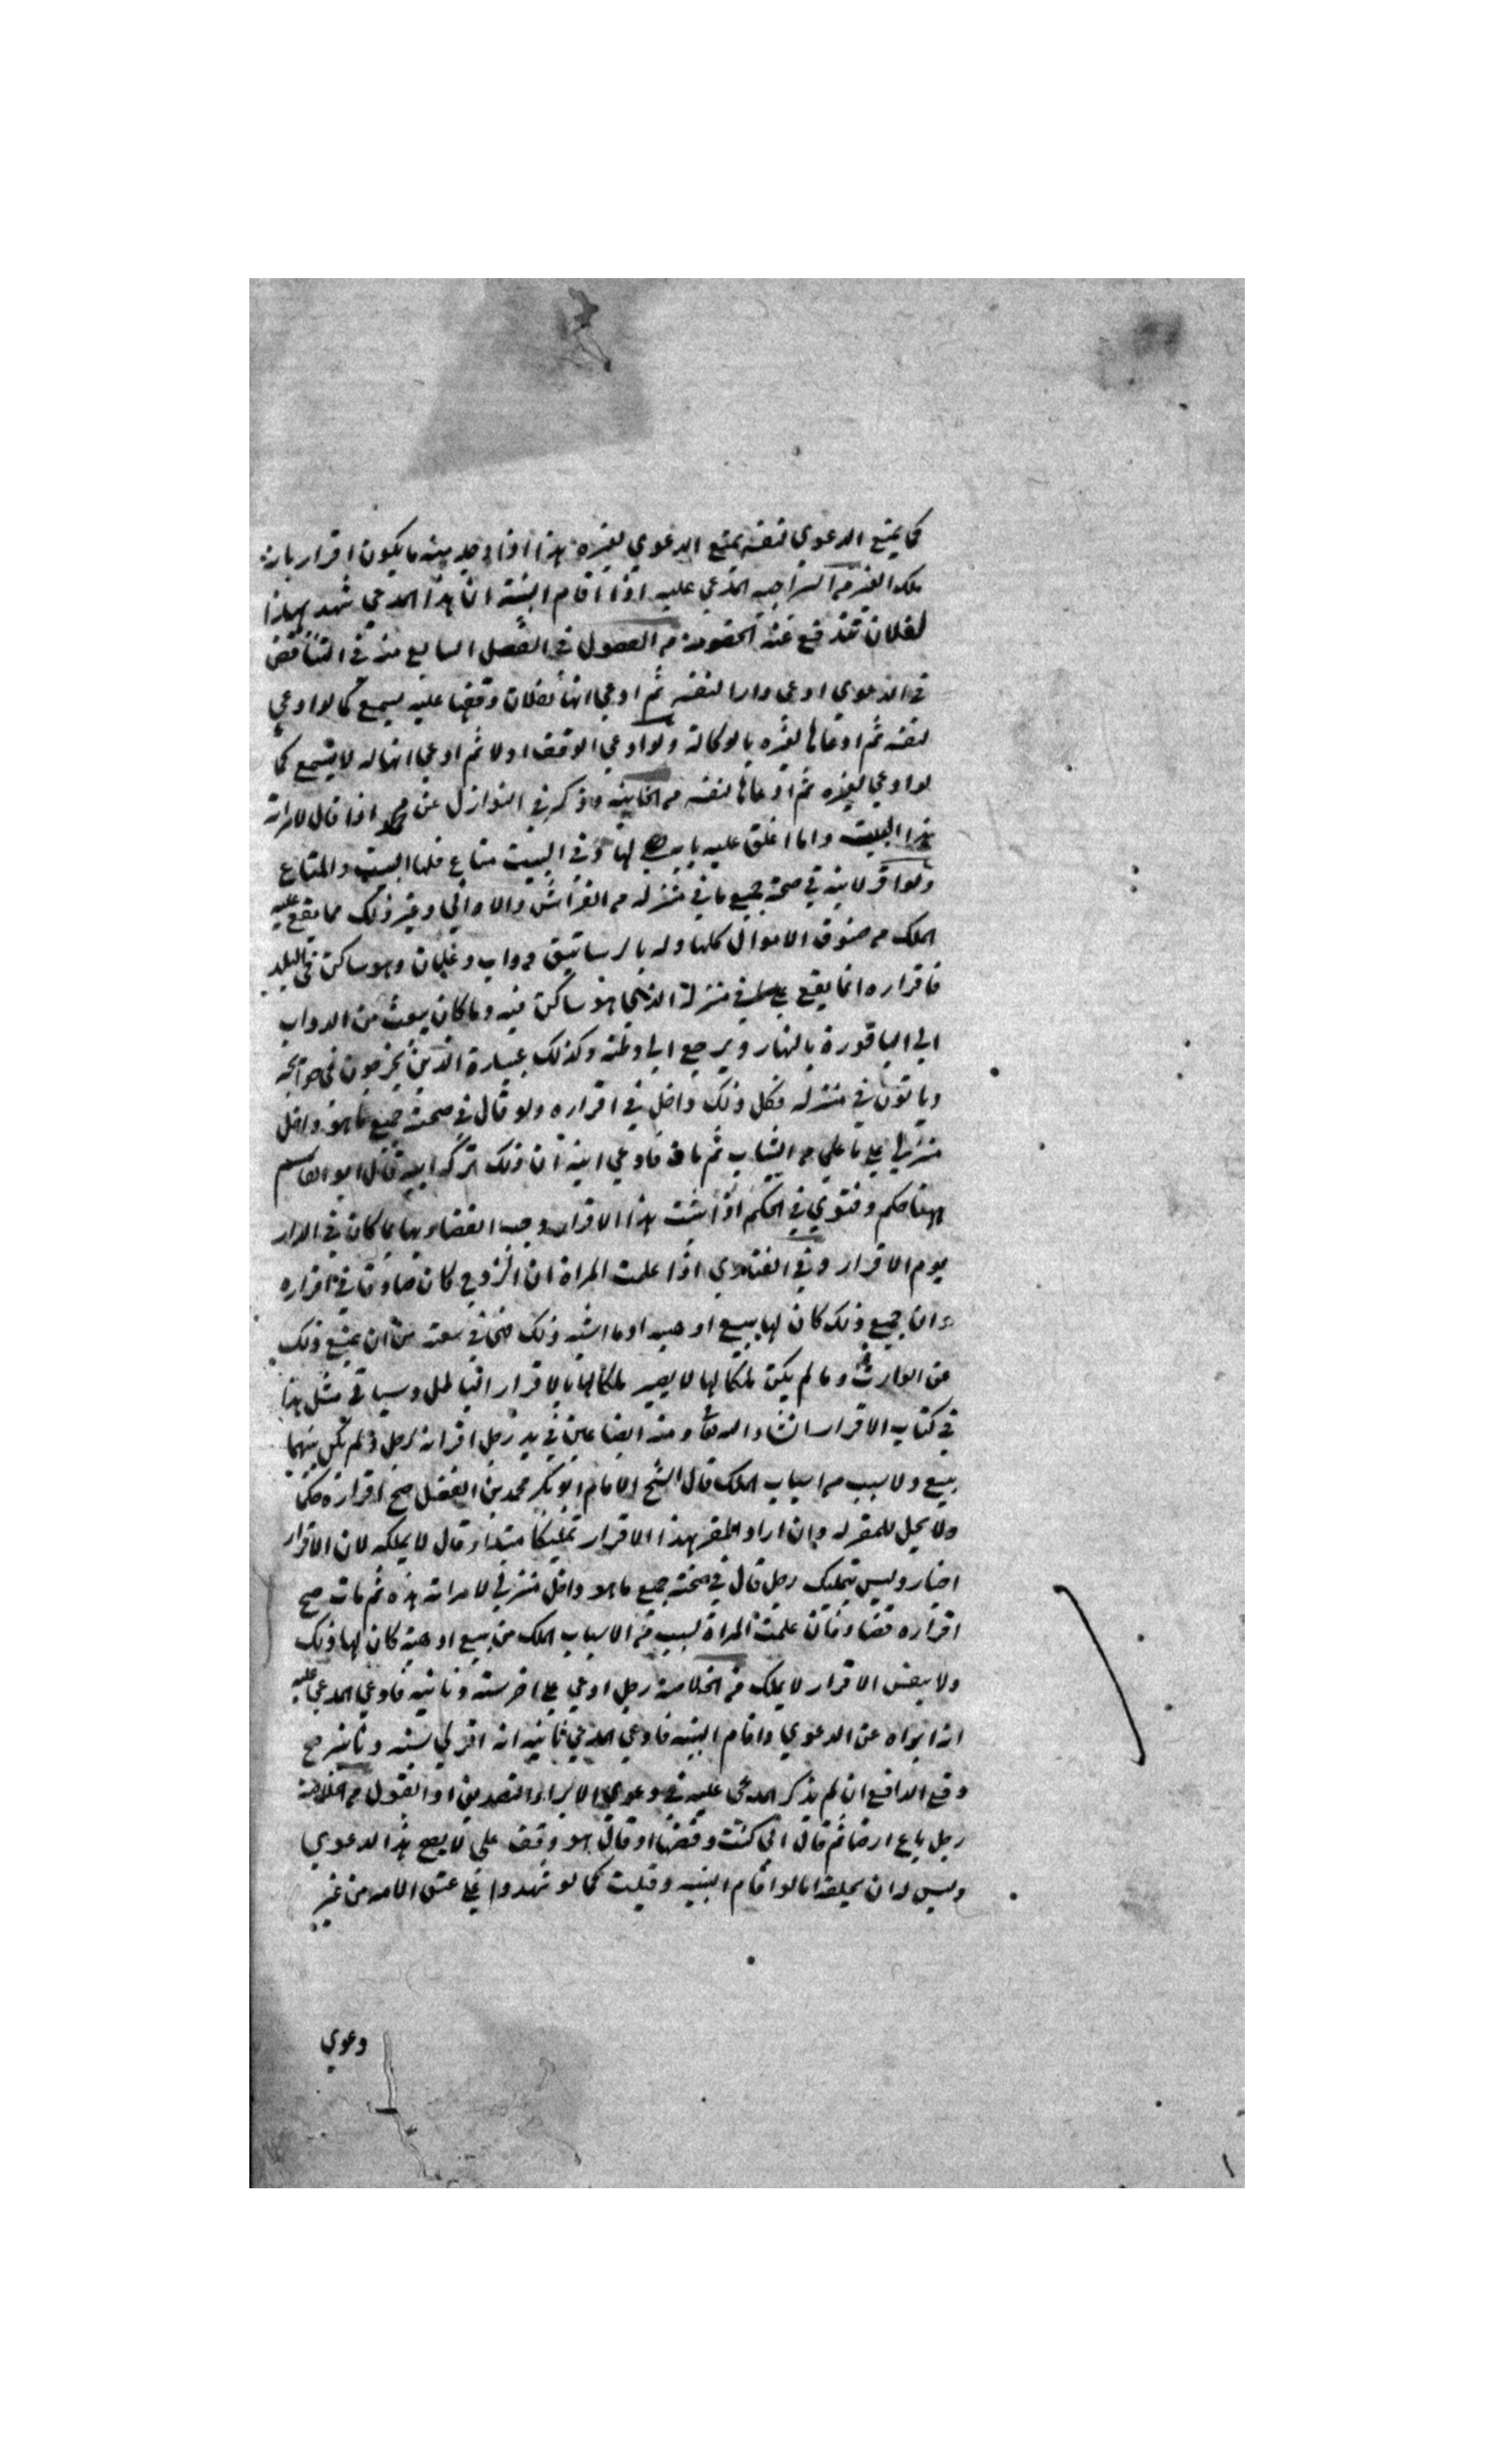 كما يمنع الدعوي لنفسه يمنع الدعوي لغيره هذا اذا وجد منه ما يكون اقرار بانه
ملك الغير من السراجيه المدعي عليه اذا اقام البينة ان هذا المدعي شهد بهذا
لفلان تندفع عنه الخصومه من الفصول في الفصل السابع منه في التناقض
في الدعوي ادعي دارا لنفسه ثم ادعي انها لفلان وقفها عليه يسمع كما لو ادعي
لنفسه ثم ادعاها لغيره بالوكالة ولو ادعي الوقف اولا ثم ادعي انها له لا يسمع كما
لو ادعي لغيره ثم ادعاها لنفسه من الخانيه وذكر في النوازل عن محمد اذا قال لامراته
هذا البيت وما اغلق عليه بابه لها وفي البيت متاع فلها البيت والمتاع
ولو اقر لابنه في صحته جميع ما في منزله من الفراش والاواني وغير ذلك مما يقع عليه
الملك من صنوف الاموال كلها وله بالرساتيق دواب وغلمان وهو ساكن في البلد
فاقراره انما يقع علي ما في منزله الذي هو ساكن فيه وما كان يبعث من الدواب
الي الباقورة بالنهار ويرجع الي وطنه وكذلك عبيده الذين يخرجون في حوائجه
وياتون في منزله فكل ذلك داخل في اقراره ولو قال في صحته جميع ما هو داخل
منزلي علي ما علي من الثياب ثم مات فادعي ابنه ان ذلك تركه ابيه قال ابو القاسم
ههنا حكم وفتوي في الحكم اذا ثبت هذا الاقرار وجب القضاء بها بما كان في الدار
يوم الاقرار وفي الفتاوي اذا علمت المراة ان الزوج كان صادقا في اقراره
وان جميع ذلك كان لها ببيع او هبه او ما اشبه ذلك فهي في سعة من ان يمنع ذلك
عن الوارث وما لم يكن ملكا لها لا يصير ملكا لها بالاقرار الباطل وسياتي مثل هذا
في كتاب الاقرار ان شاء الله تعا ومنه ايضا عين في يد رجل اقر انه لرجل ولم يكن بينهما
بيع ولا سبب من اسباب الملك قال الشيخ الامام ابو بكر محمد بن الفضل صح اقراره حكما
ولا يحل للمقر له وان اراد المقر بهذا الاقرار تمليكا مبتداء قال لا يملكه لان الاقرار
اخبار وليس بتمليك رجل قال في صحته جميع ما هو داخل منزلي لامراته هذه ثم مات صح
اقراره قضاء فان علمت المراة لسبب من الاسباب الملك من بيع او هبة كان لها ذلك
ولا بنفس الاقرار لا يملك من الخلاصة رجل ادعي علي اخر ستة وثانيه فادعي المدعي عليه
انه ابراه عن الدعوي واقام البينه فادعي المدعي ثانيه انه اقر لي بستة وثانيه صح
دفع الدافع ان لم يذكر المدعي عليه في دعوي الابراء التصديق او القبول من الخلاصة
رجل باع ارضا ثم قال اني كنت وقفتها او قال هو وقف علي لا يصح هذا الدعوي
وليس له ان يحلفه اما لو اقام البينه وقبلت كما لو شهدوا علي عتق الامة من غير
دعوي